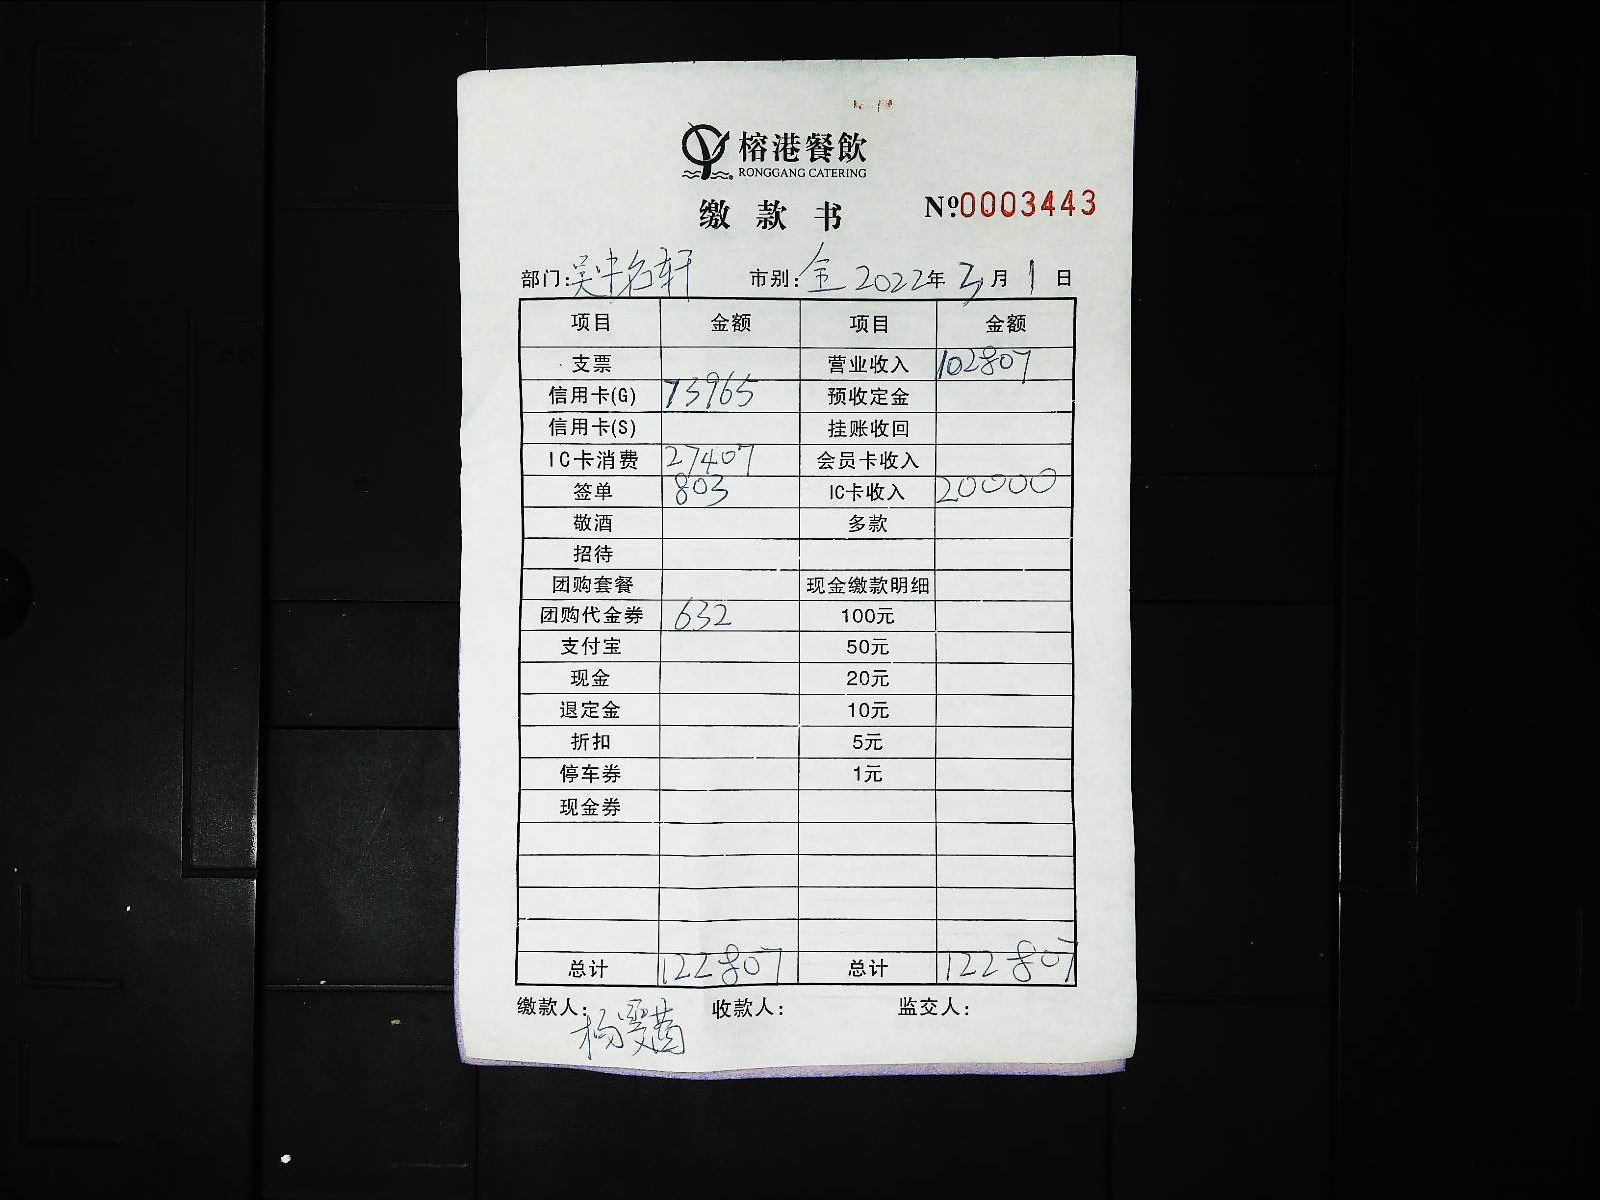 榕港餐飲
RONGGANG CATERING
缴款书 №0003443
部门:吴中名轩 市别:全 2022年 3月 1日
项目 金额 项目 金额
支票 营业收入 102807
信用卡(G) 93965 预收定金
信用卡(S) 挂账收回
IC卡消费 27407 会员卡收入
签单 803 IC卡收入 20000
敬酒 多款
招待
团购套餐 现金缴款明细
团购代金券 632 100元
支付宝 50元
现金 20元
退定金 10元
折扣 5元
停车券 1元
现金券
总计 122807 总计 122807
缴款人: 杨雯茜 收款人: 监交人: